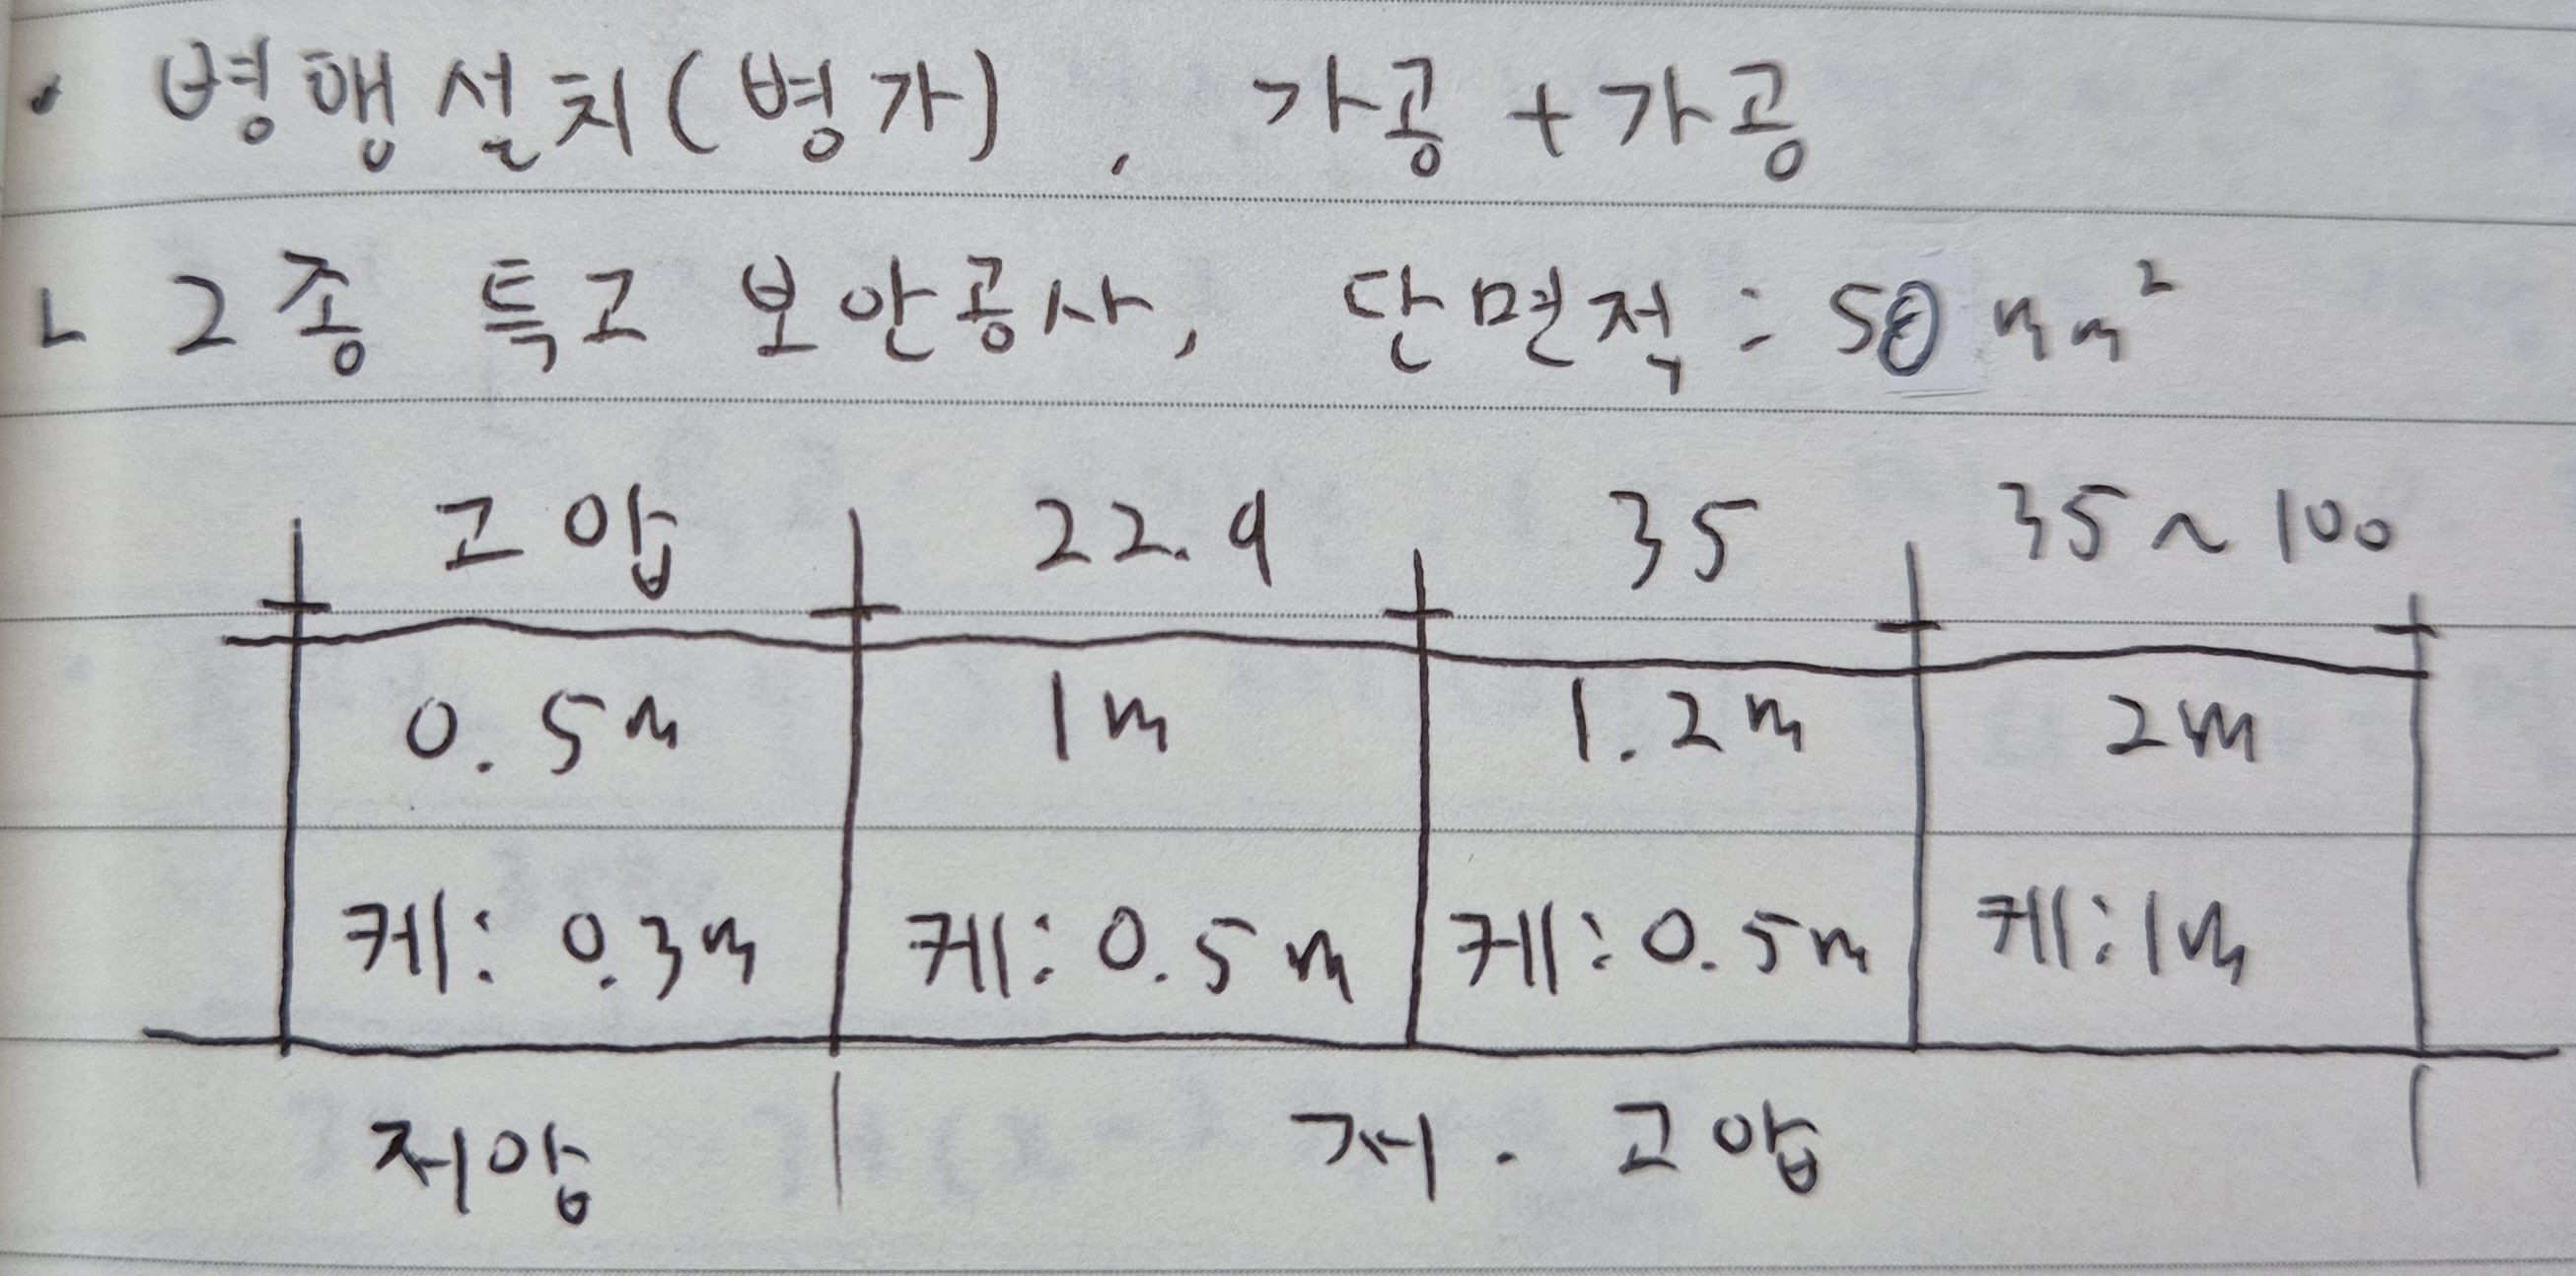 • 병행설치(병가), 가공+가공
ㄴ 2종 특고 보안공사, 단면적 : 50 mm²
고압 22.9 35 35~100
0.5m 1m 1.2m 2m
케: 0.3m 케: 0.5m 케: 0.5m 케: 1m
저압 저·고압